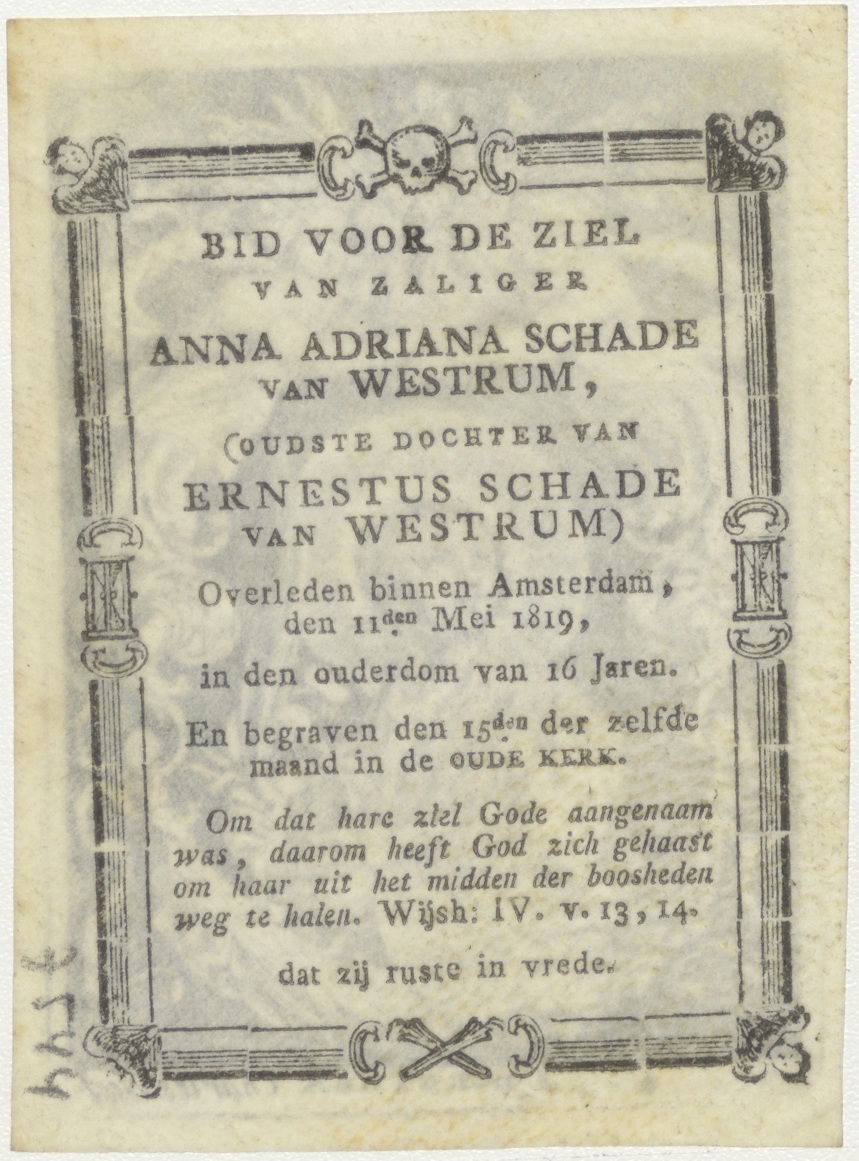 BID VOOR DE ZIEL
VAN ZALIGER
ANNA ADRIANA SCHADE
VAN WESTRUM,
(OUDSTE DOCHTER VAN
ERNESTUS SCHADE
VAN WESTRUM)
Overleden binnen Amsterdam,
den 11den Mei 1819,
in den ouderdom van 16 Jaren.
En begraven den 15den der zelfde
maand in de OUDE KERK.
Om dat hare ziel Gode aangenaam
was, daarom heeft God zich gehaast
om haar uit het midden der boosheden
weg te halen. Wijsh: IV. v. 13, 14.
dat zij ruste in vrede.